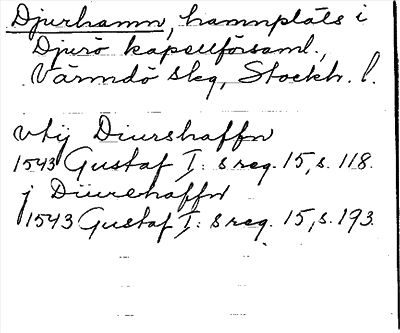 Djurhamn, hamnplats i
Djurö kapellförsaml.,
Värmdö skg, Stockh. l.
vtij Diurshaffn
1543 Gustaf I: s reg. 15, s. 118.
j Diurehaffn
1543 Gustaf I: s reg. 15, s. 193.